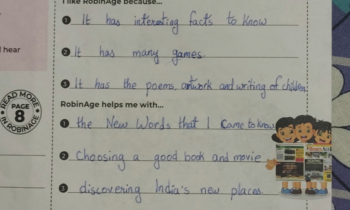 I like RobinAge because...
1 It has interesting facts to know
2 It has many games.
3 It has the poems, artwork and writing of children
RobinAge helps me with...
1 the New Words that I came to know
2 Choosing a good book and movie
3 discovering India's new places.
hear
READ MORE
PAGE
8
IN ROBINAGE